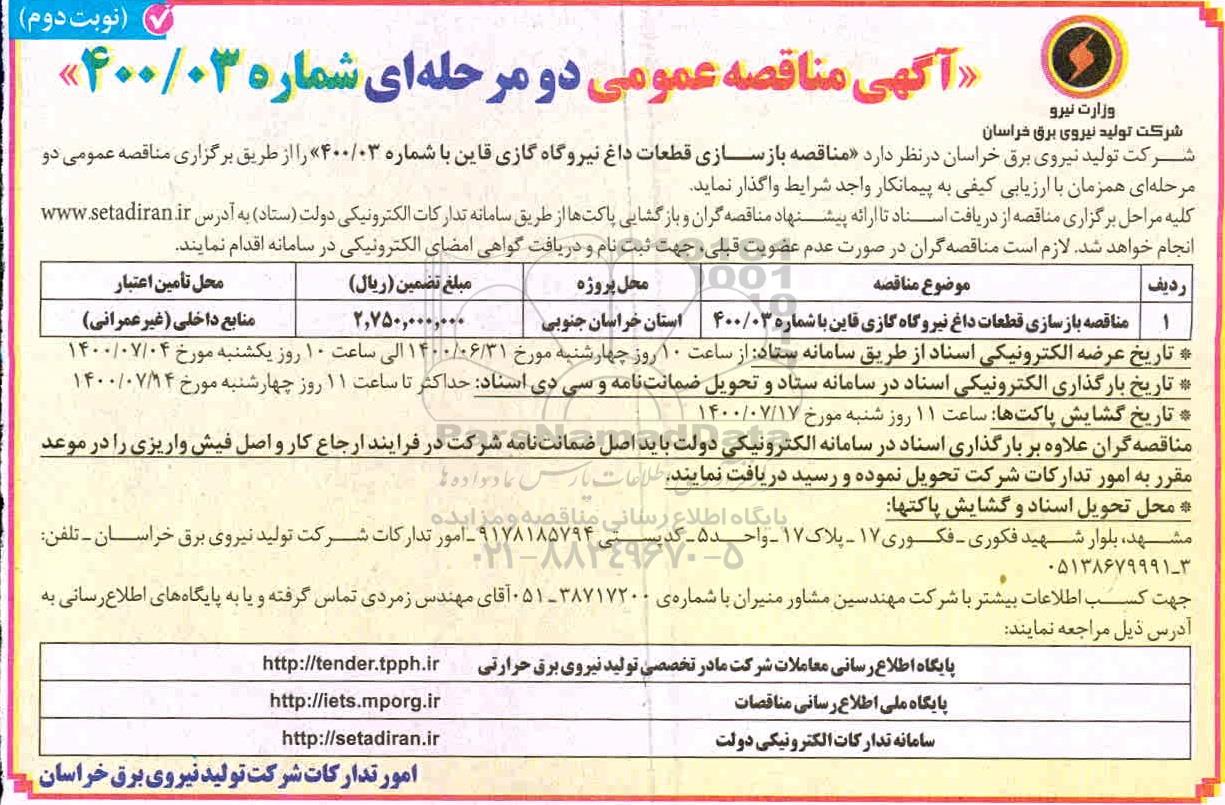 (نوبت دوم)
«آگهی مناقصه عمومی دو مرحله‌ای شماره ۴۰۰/۰۳»
وزارت نیرو
شرکت تولید نیروی برق خراسان
شرکت تولید نیروی برق خراسان درنظر دارد «مناقصه بازسازی قطعات داغ نیروگاه گازی قاین با شماره ۴۰۰/۰۳» را از طریق برگزاری مناقصه عمومی دو
مرحله‌ای همزمان با ارزیابی کیفی به پیمانکار واجد شرایط واگذار نماید.
کلیه مراحل برگزاری مناقصه از دریافت اسناد تا ارائه پیشنهاد مناقصه‌گران و بازگشایی پاکت‌ها از طریق سامانه تدارکات الکترونیکی دولت (ستاد) به آدرس www.setadiran.ir
انجام خواهد شد. لازم است مناقصه‌گران در صورت عدم عضویت قبلی، جهت ثبت نام و دریافت گواهی امضای الکترونیکی در سامانه اقدام نمایند.
ردیف موضوع مناقصه محل پروژه مبلغ تضمین (ریال) محل تأمین اعتبار
۱ مناقصه بازسازی قطعات داغ نیروگاه گازی قاین با شماره ۴۰۰/۰۳ استان خراسان جنوبی ۲,۷۵۰,۰۰۰,۰۰۰ منابع داخلی (غیرعمرانی)
* تاریخ عرضه الکترونیکی اسناد از طریق سامانه ستاد: از ساعت ۱۰ روز چهارشنبه مورخ ۱۴۰۰/۰۶/۳۱ الی ساعت ۱۰ روز یکشنبه مورخ ۱۴۰۰/۰۷/۰۴
* تاریخ بارگذاری الکترونیکی اسناد در سامانه ستاد و تحویل ضمانت‌نامه و سی دی اسناد: حداکثر تا ساعت ۱۱ روز چهارشنبه مورخ ۱۴۰۰/۰۷/۱۴
* تاریخ گشایش پاکت‌ها: ساعت ۱۱ روز شنبه مورخ ۱۴۰۰/۰۷/۱۷
مناقصه‌گران علاوه بر بارگذاری اسناد در سامانه الکترونیکی دولت باید اصل ضمانت‌نامه شرکت در فرایند ارجاع کار و اصل فیش واریزی را در موعد
مقرر به امور تدارکات شرکت تحویل نموده و رسید دریافت نمایند.
* محل تحویل اسناد و گشایش پاکتها:
مشهد، بلوار شهید فکوری ـ فکوری۱۷ ـ پلاک۱۷ ـ واحد۵ ـ کدپستی ۹۱۷۸۱۸۵۷۹۴ ـ امور تدارکات شرکت تولید نیروی برق خراسان ـ تلفن:
۰۵۱۳۸۶۷۹۹۹۱ـ۳
جهت کسب اطلاعات بیشتر با شرکت مهندسین مشاور منیران با شماره‌ی ۳۸۷۱۷۲۰۰ـ۰۵۱ آقای مهندس زمردی تماس گرفته و یا به پایگاه‌های اطلاع‌رسانی به
آدرس ذیل مراجعه نمایند:
پایگاه اطلاع‌رسانی معاملات شرکت مادر تخصصی تولید نیروی برق حرارتی http://tender.tpph.ir
پایگاه ملی اطلاع‌رسانی مناقصات http://iets.mporg.ir
سامانه تدارکات الکترونیکی دولت http://setadiran.ir
امور تدارکات شرکت تولید نیروی برق خراسان
ParsNamadData
پایگاه اطلاع رسانی مناقصه و مزایده
۰۲۱-۸۸۳۴۹۶۷۰-۵